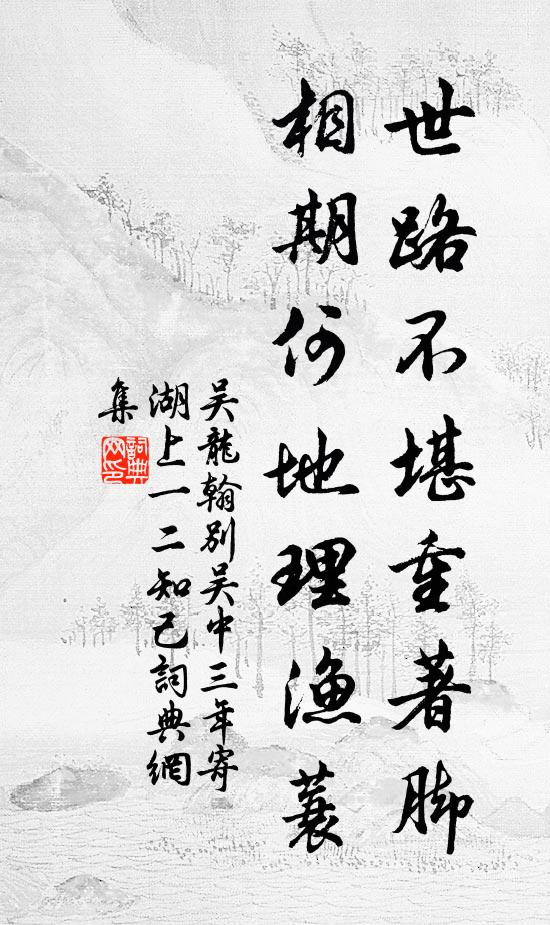 世路不堪重著脚
相期何地理漁蓑
吴龍翰别吴中三年寄
湖上一二知己詞典網
集
詞典
网印